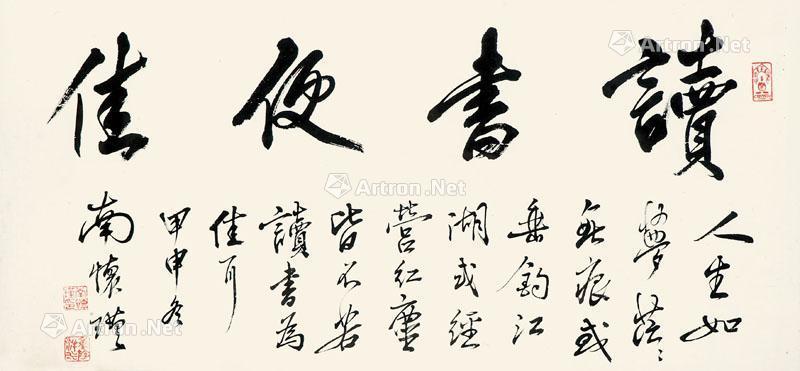 讀書便佳
人生如
夢
無痕或
垂釣江
湖或經
營紅塵
皆不若
讀書為
佳耳
甲申冬
南懷瑾
Artron.Net
Artron.Net
Artron.Net
Artron.Net
Artron.Net